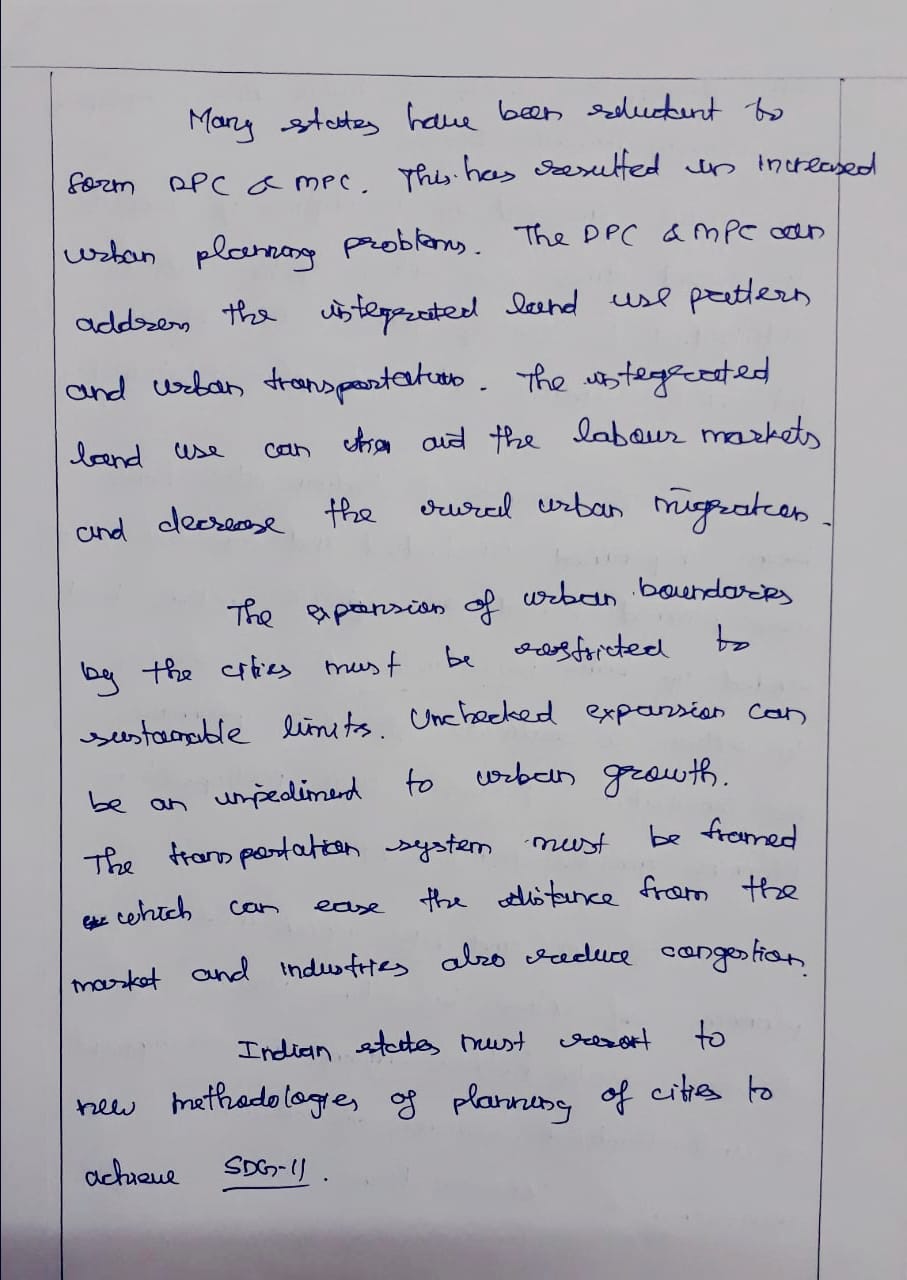 Many states have been reluctant to
form DPC & MPC. This has resulted in increased
urban planning problems. The DPC & MPC can
address the integerated land use pattern
and urban transportation. The integerated
land use can aid the labour markets
and decrease the rural urban migration.
The expansion of urban boundaries
by the cities must be restricted to
sustainable limits. Unchecked expansion can
be an impediment to urban growth.
The transportation system must be framed
which can ease the distance from the
market and industries also reduce congestion.
Indian states must resort to
new methodologies of planning of cities to
achieve SDG-11.